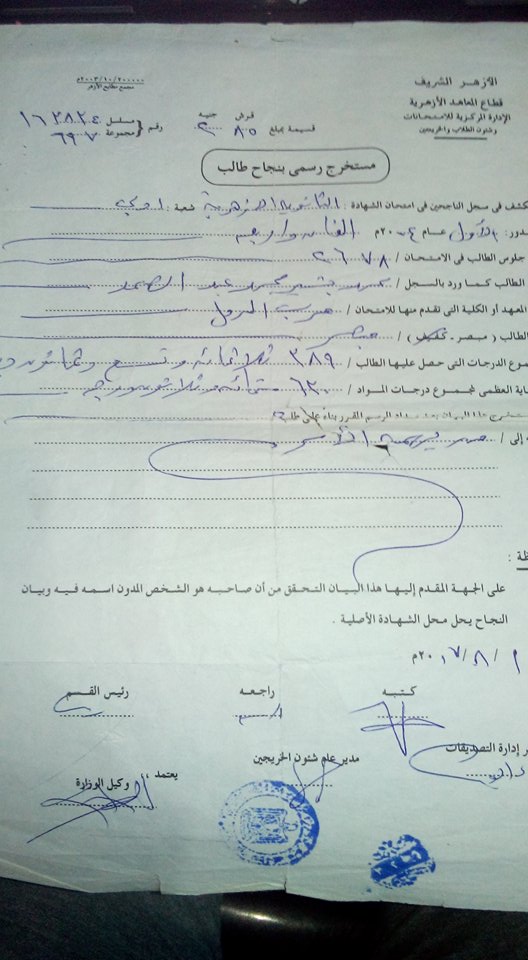 ٢٠٠٣/١٠/٢٠٠٠٠٠م
مجمع مطابع الأزهر
الأزهر الشريف
قطاع المعاهد الأزهرية
الإدارة المركزية للامتحانات
وشئون الطلاب والخريجين
قرش جنيه
قسيمة بمبلغ ٨٥ ٢
رقم { مسلسل ١٦٣٨٢٤
مجموعة ٦٩٧
مستخرج رسمى بنجاح طالب
كشف فى سجل الناجحين فى امتحان الشهادة : الثانوية الأزهرية شعبة : أدبى
دور : الأول عام ٢٠٠٤م
جلوس الطالب فى الامتحان / ٢٦٧٨
الطالب كما ورد بالسجل / محمد عبد الصمد
المعهد أو الكلية التى تقدم منها للامتحان /
الطالب ( مبصر - كفيف ) / مبصر
موع الدرجات التى حصل عليها الطالب / ٣٨٩ ثلاثمائة وتسع وثمانون
اية العظمى لمجموع درجات المواد / ٦٣٠ ستمائة وثلاثون درجة
ستخرج هذا البيان بعد سداد الرسم المقرر بناء على طلبه
إلى / من يهمه الأمر
ظة :
على الجهة المقدم إليها هذا البيان التحقق من أن صاحبه هو الشخص المدون اسمه فيه وبيان
النجاح يحل محل الشهادة الأصلية .
١ / ٨ / ٢٠١٧م
كتبه راجعه رئيس القسم
ر إدارة التصديقات مدير عام شئون الخريجين يعتمد ،،
وكيل الوزارة